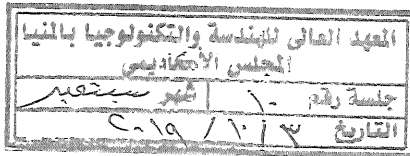 المعهد العالى للهندسة والتكنولوجيا بالمنيا
المجلس الأكاديمى
جلسة رقم ١٠ شهر سبتمبر
التاريخ ٣ / ١٠ / ٢٠١٩